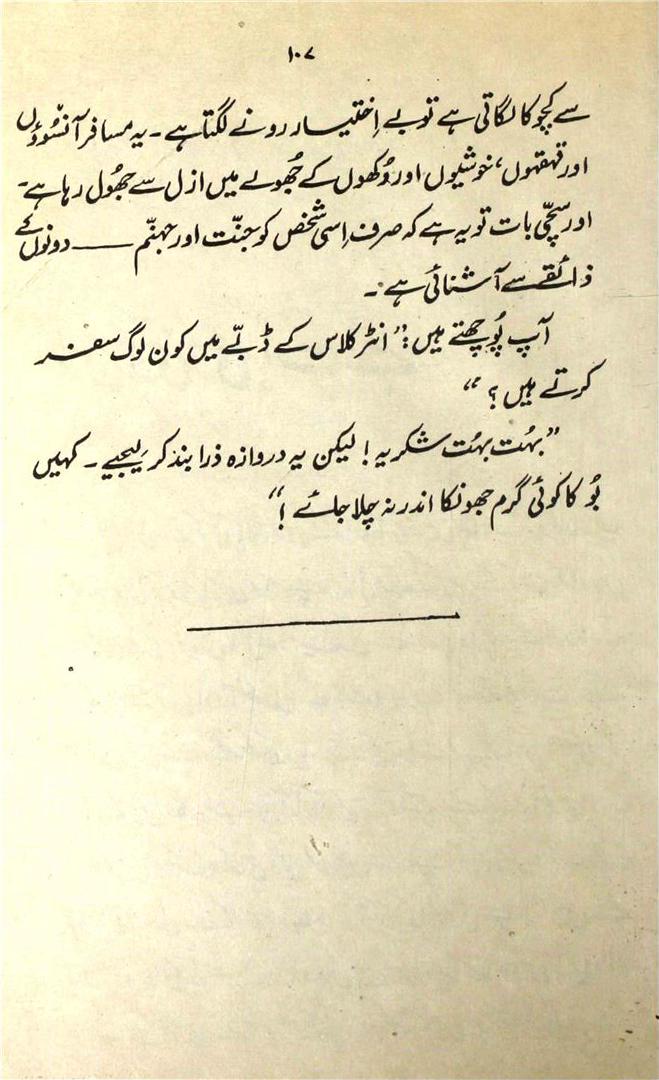 ۱۰۷
سے کچوکا لگاتی ہے تو بے اِختیار رونے لگتا ہے۔ یہ مسافر آنسوؤں
اور قہقہوں، خوشیوں اور دُکھوں کے جُھولے میں ازل سے جُھول رہا ہے۔
اور سچّی بات تو یہ ہے کہ صرف اِسی شخص کو جنّت اور جہنّم —— دونوں کے
ذائقے سے آشنائی ہے۔
آپ پُوچھتے ہیں: "انٹر کلاس کے ڈبّے میں کون لوگ سفر
کرتے ہیں؟"
"بہُت بہُت شکریہ! لیکن یہ دروازہ ذرا بند کر لیجیے۔ کہیں
بُو کا کوئی گرم جھونکا اندر نہ چلا جائے!"